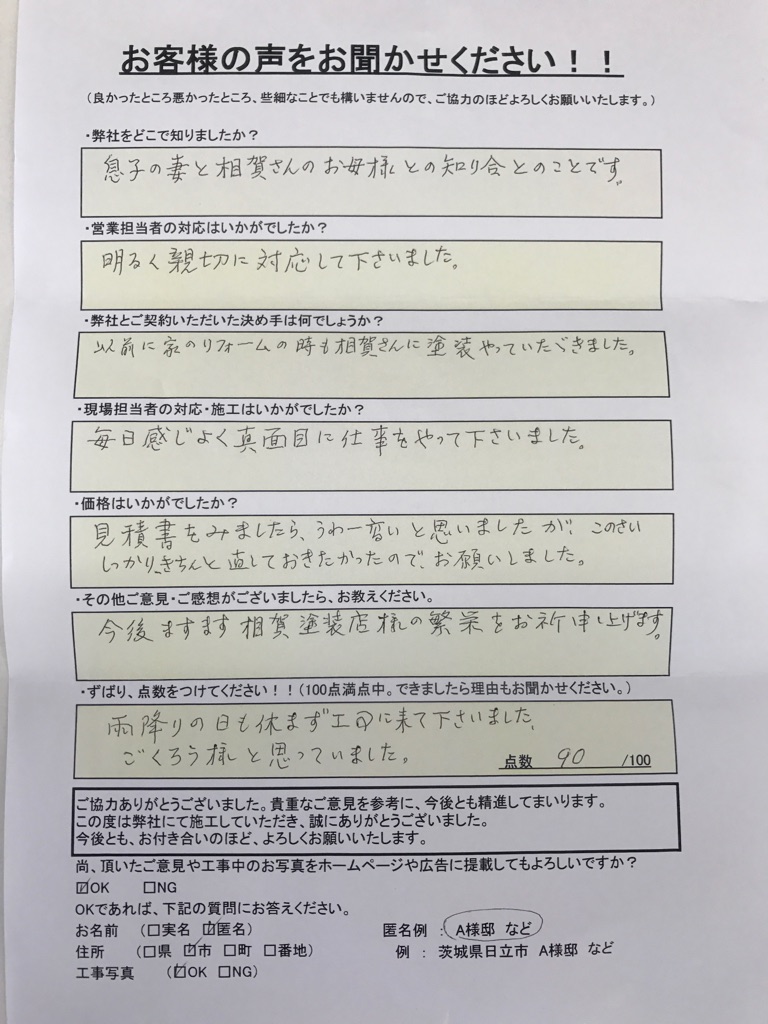 お客様の声をお聞かせください！！
（良かったところ悪かったところ、些細なことでも構いませんので、ご協力のほどよろしくお願いいたします。）
・弊社をどこで知りましたか？
息子の妻と相賀さんのお母様との知り合とのことです。
・営業担当者の対応はいかがでしたか？
明るく親切に対応して下さいました。
・弊社とご契約いただいた決め手は何でしょうか？
以前に家のリフォームの時も相賀さんに塗装やっていただきました。
・現場担当者の対応・施工はいかがでしたか？
毎日感じよく真面目に仕事をやって下さいました。
・価格はいかがでしたか？
見積書をみましたら、うわー高いと思いましたが、このさい
しっかり、きちんと直しておきたかったので、お願いしました。
・その他ご意見・ご感想がございましたら、お教えください。
今後ますます相賀塗装店様の繁栄をお祈申し上げます。
・ずばり、点数をつけてください！！（100点満点中。できましたら理由もお聞かせください。）
雨降りの日も休まず に来て下さいました、
ごくろう様と思っていました。
点数 90 /100
ご協力ありがとうございました。貴重なご意見を参考に、今後とも精進してまいります。
この度は弊社にて施工していただき、誠にありがとうございました。
今後とも、お付き合いのほど、よろしくお願いいたします。
尚、頂いたご意見や工事中のお写真をホームページや広告に掲載してもよろしいですか？
☑OK □NG
OKであれば、下記の質問にお答えください。
お名前 （□実名 ☑匿名） 匿名例 ： A様邸 など
住所 （□県 ☑市 □町 □番地） 例 ： 茨城県日立市 A様邸 など
工事写真 （☑OK □NG）